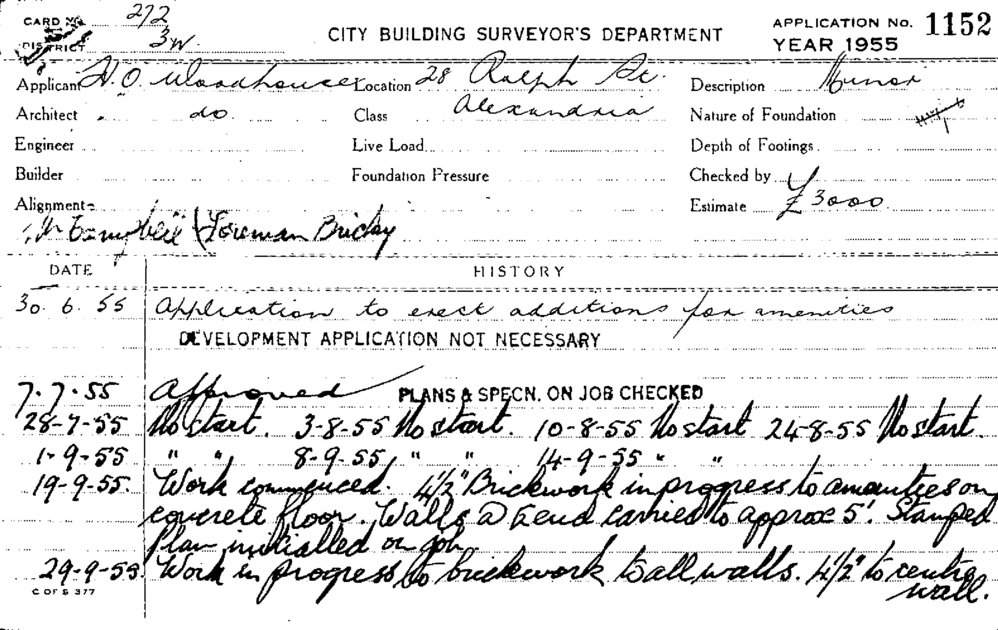 CARD No. 272
DISTRICT 3W.
CITY BUILDING SURVEYOR'S DEPARTMENT
APPLICATION No. 1152
YEAR 1955
Applicant H.O. Woodhouse Location 28 Ralph St. Description Minor
Architect " do Class Alexandria Nature of Foundation
Engineer Live Load Depth of Footings
Builder Foundation Pressure Checked by
Alignment Estimate £3000
Campbell (Foreman Bricky
DATE HISTORY
30.6.55 Application to erect additions for amenities
DEVELOPMENT APPLICATION NOT NECESSARY
7-7-55 Approved PLANS & SPECN. ON JOB CHECKED
28-7-55 No start. 3-8-55 No start. 10-8-55 No start 24-8-55 No start.
1-9-55 " " 8-9-55 " " 14-9-55 " "
19-9-55. Work commenced. 4½" Brickwork in progress to amenities on
concrete floor. Walls @ end carried to approx 5'. Stamped
plan initialled on job.
29-9-55 Work in progress to brickwork to all walls. 4½" to centre
wall.
C OF S 377